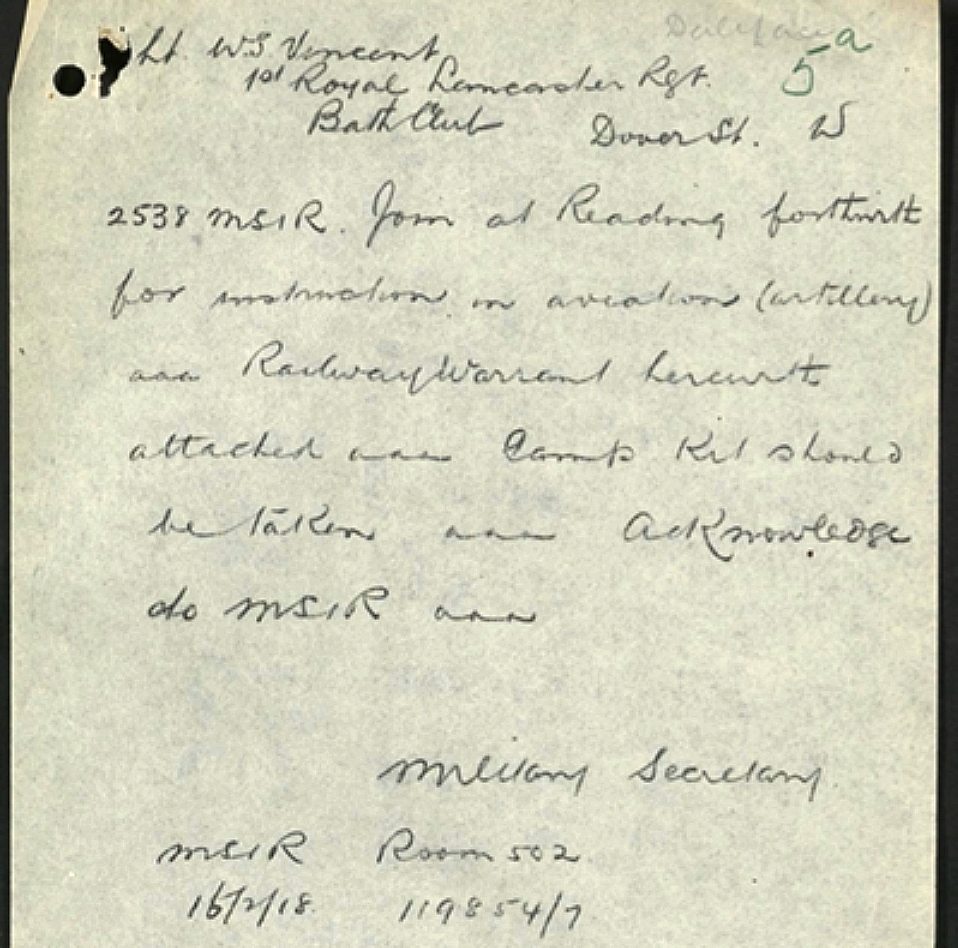 5a
Lt. W.S. Vincent
1st Royal Lancaster Rgt.
Bath Club Dover St. W
2538 MS1R. Join at Reading forthwith
for instruction in aviation (artillery)
aaa Railway Warrant herewith
attached aaa Camp Kit should
be taken aaa Acknowledge
to MS1R aaa
Military Secretary
MS1R Room 502
16/2/18 119854/7